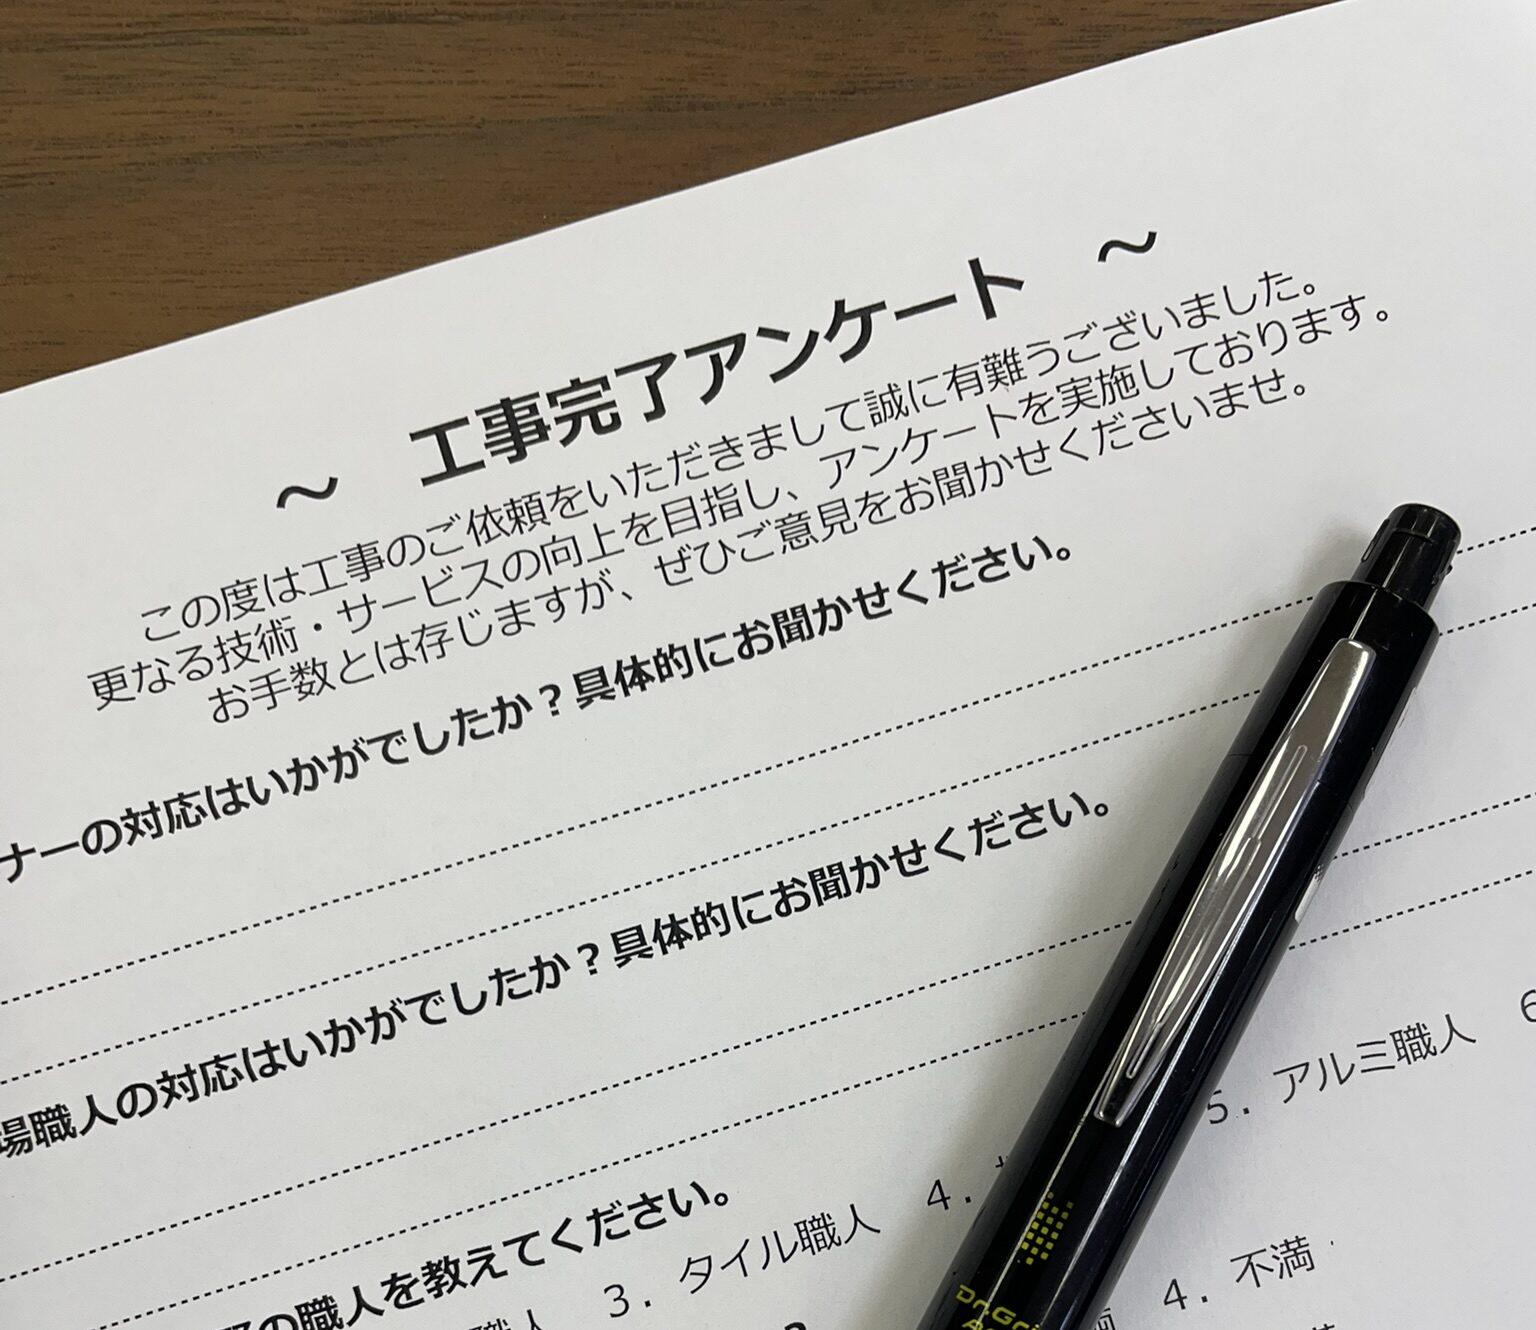 ～　工事完了アンケート　～
この度は工事のご依頼をいただきまして誠に有難うございました。
更なる技術・サービスの向上を目指し、アンケートを実施しております。
お手数とは存じますが、ぜひご意見をお聞かせくださいませ。
ナーの対応はいかがでしたか？具体的にお聞かせください。
場職人の対応はいかがでしたか？具体的にお聞かせください。
の職人を教えてください。
職人　3．タイル職人　4．　5．アルミ職人　6
4．不満
Dr.Gr